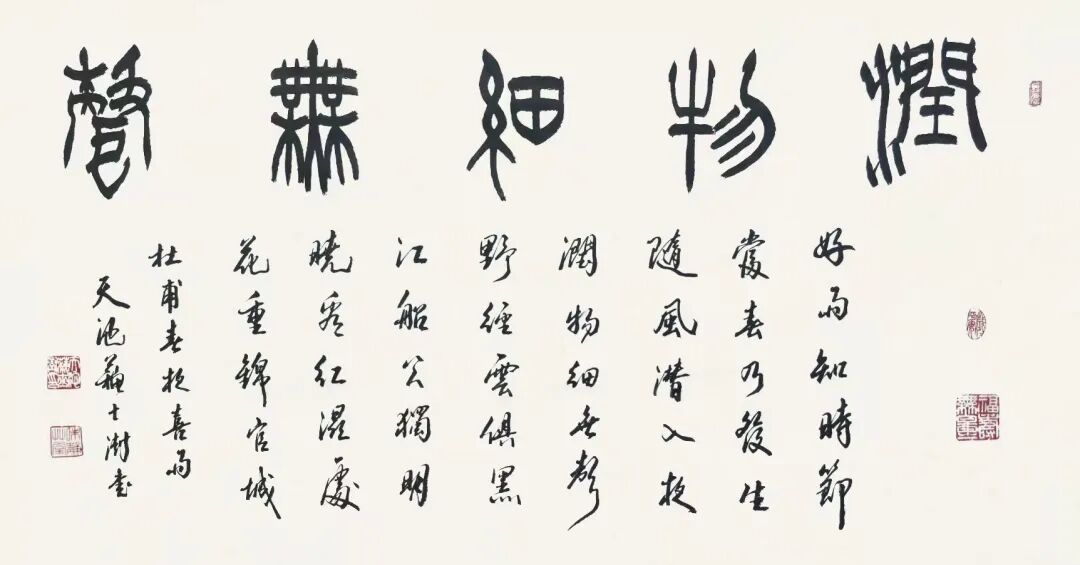 潤物細無聲
好雨知時節
當春乃發生
隨風潛入夜
潤物細無聲
野徑雲俱黑
江船火獨明
曉看紅濕處
花重錦官城
杜甫春夜喜雨
天池蘇士澍書
福壽無量